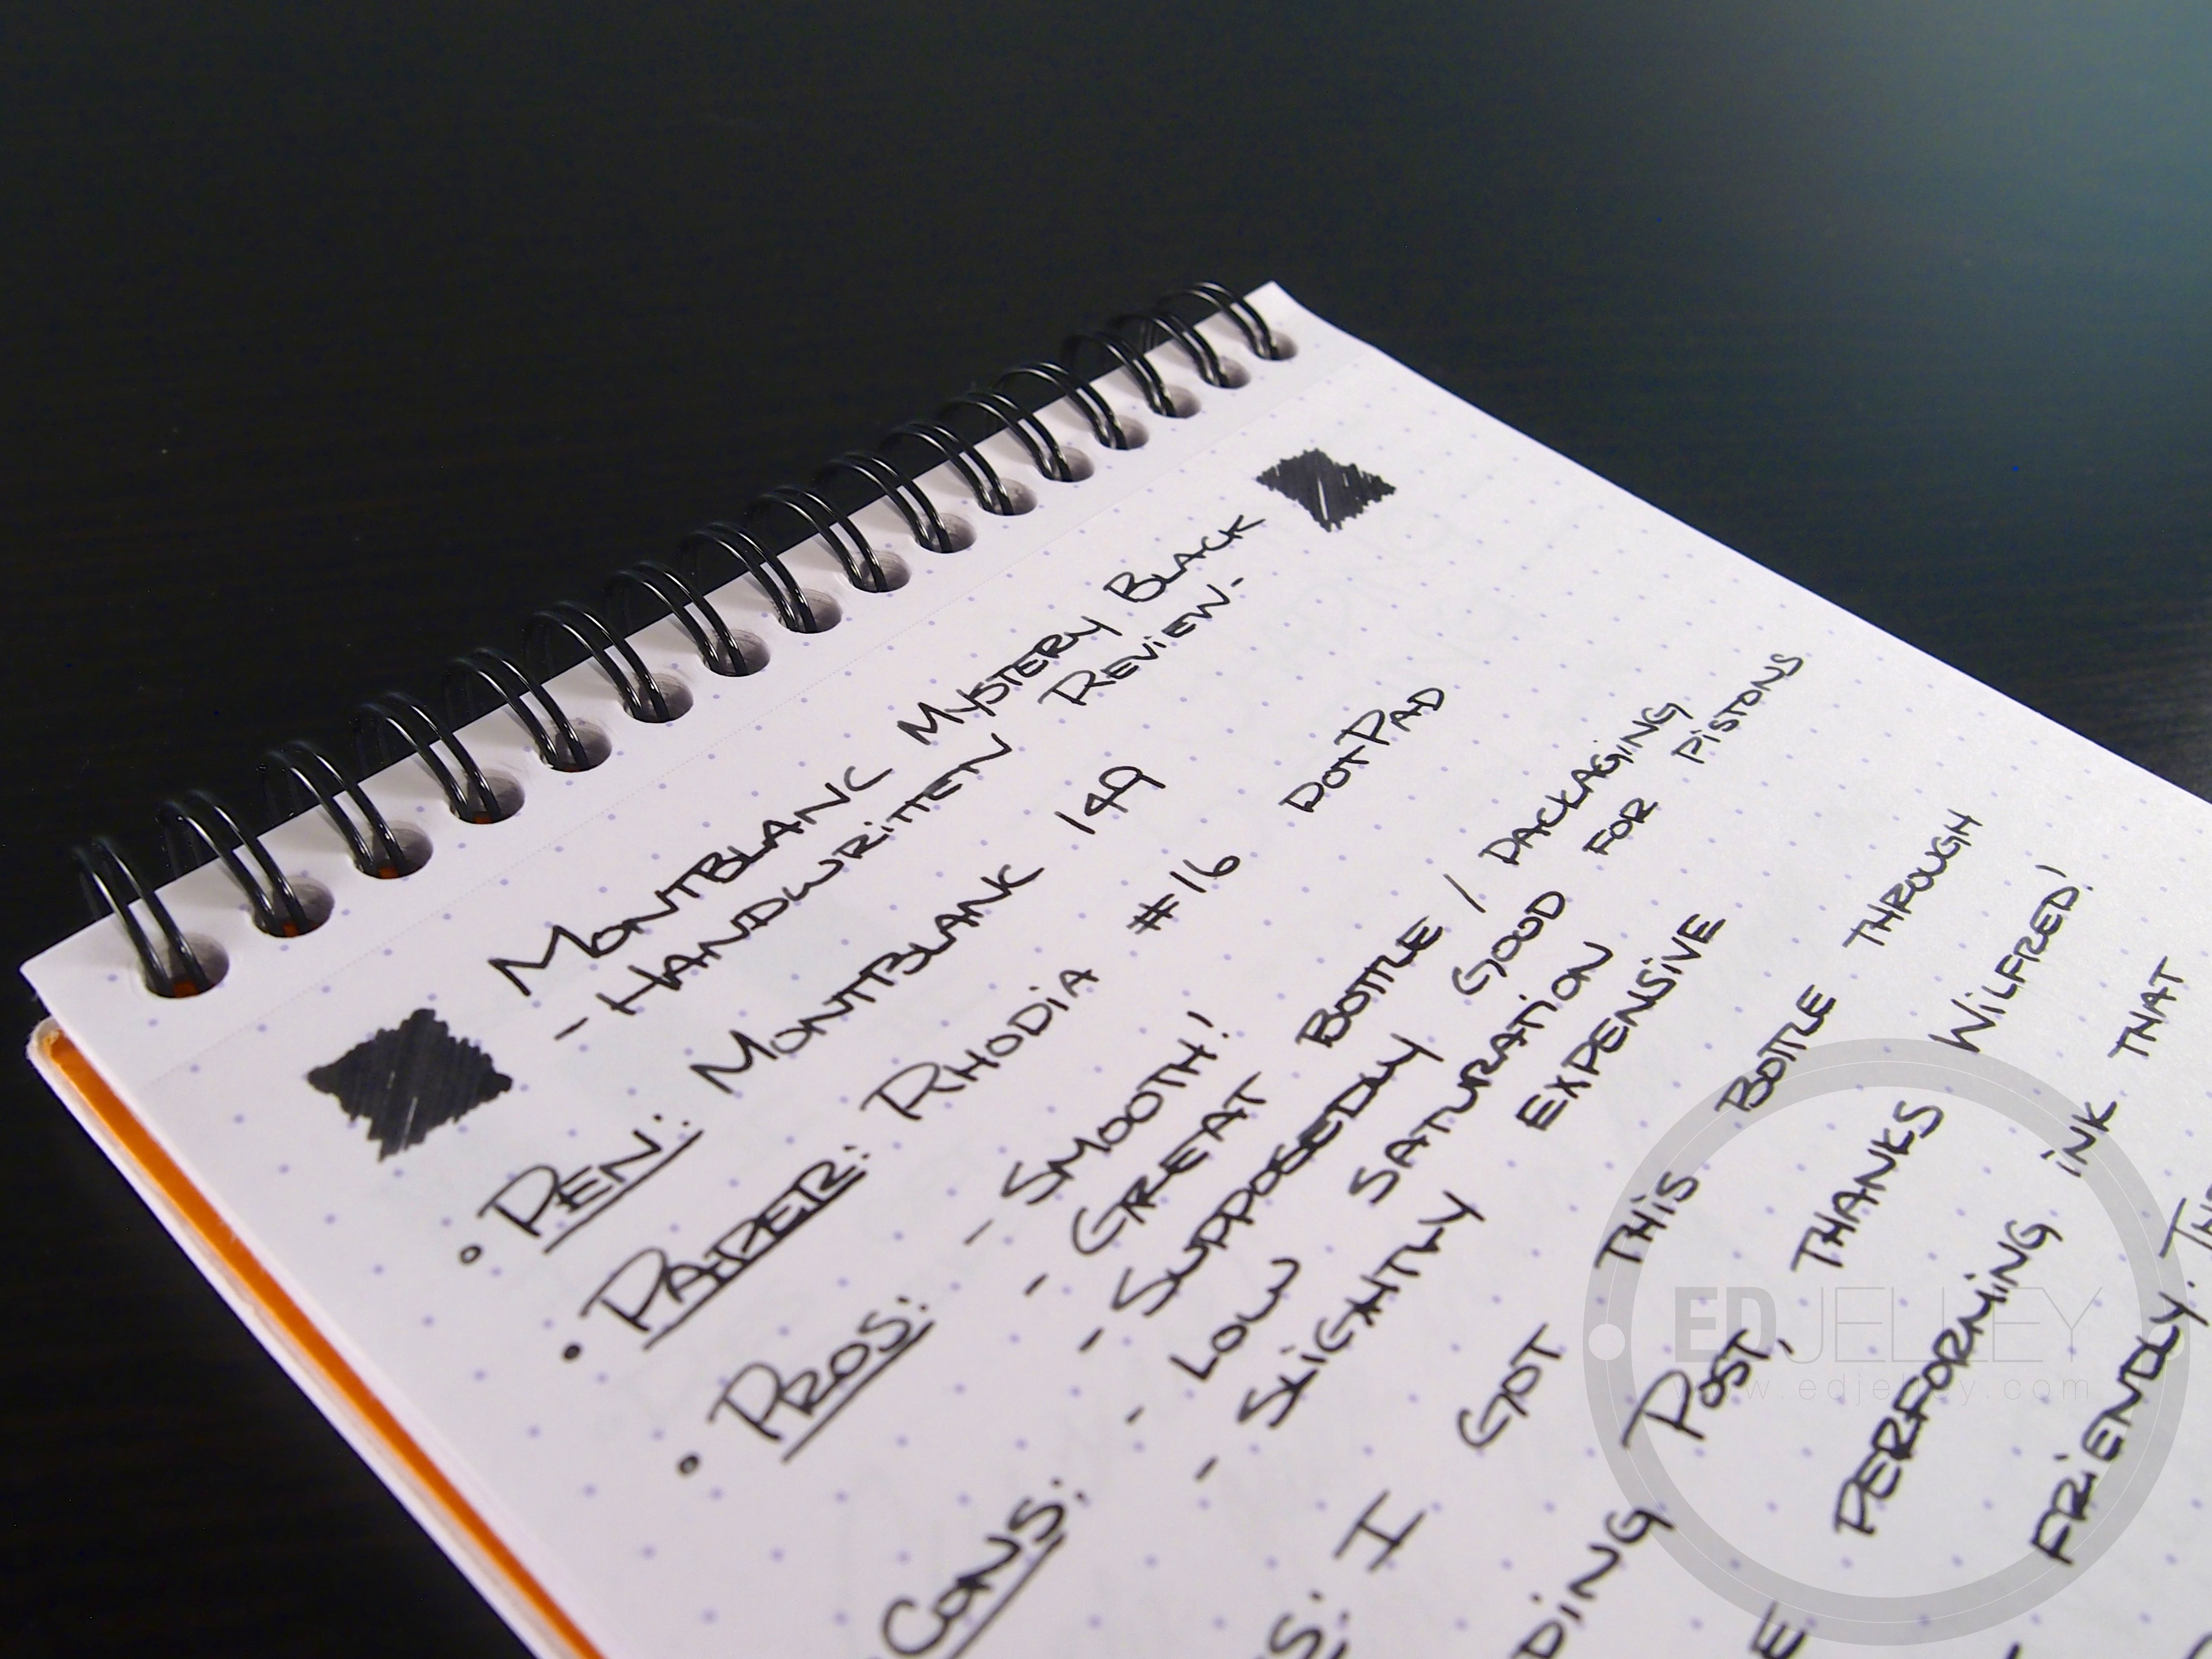 Montblanc Mystery Black
- Handwritten Review -
• Pen: Montblanc 149
• Paper: Rhodia #16 DotPad
• Pros: - Smooth!
- Great Bottle / Packaging
- Supposedly Good for Pistons
Cons: - Low Saturation
- Slightly Expensive
S: I Got This Bottle Through
ding Post, Thanks Wilfred!
e Performing ink that
Friendly. The
ED JELLEY
www.edjelley.com